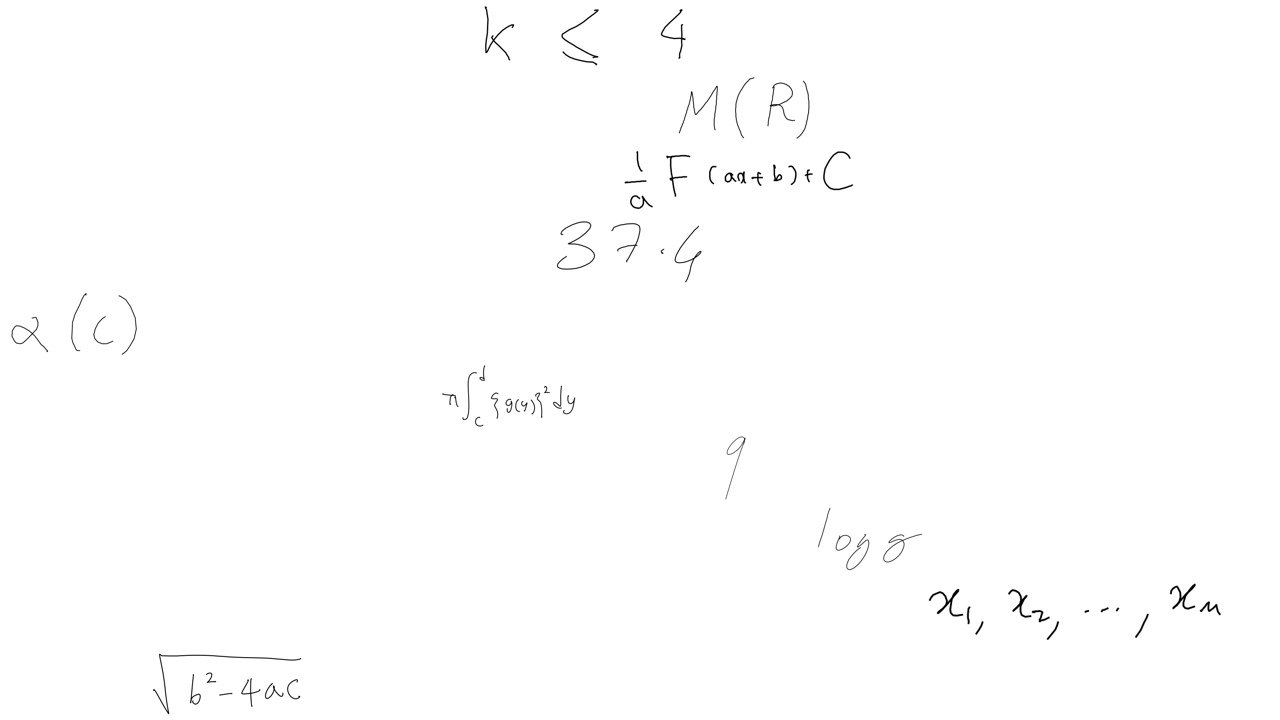 k ≤ 4
M(R)
1/a F(ax+b)+C
37.4
α(c)
π∫_c^d {g(y)}² dy
9
log 8
x₁, x₂, ⋯, xₙ
√(b²-4ac)